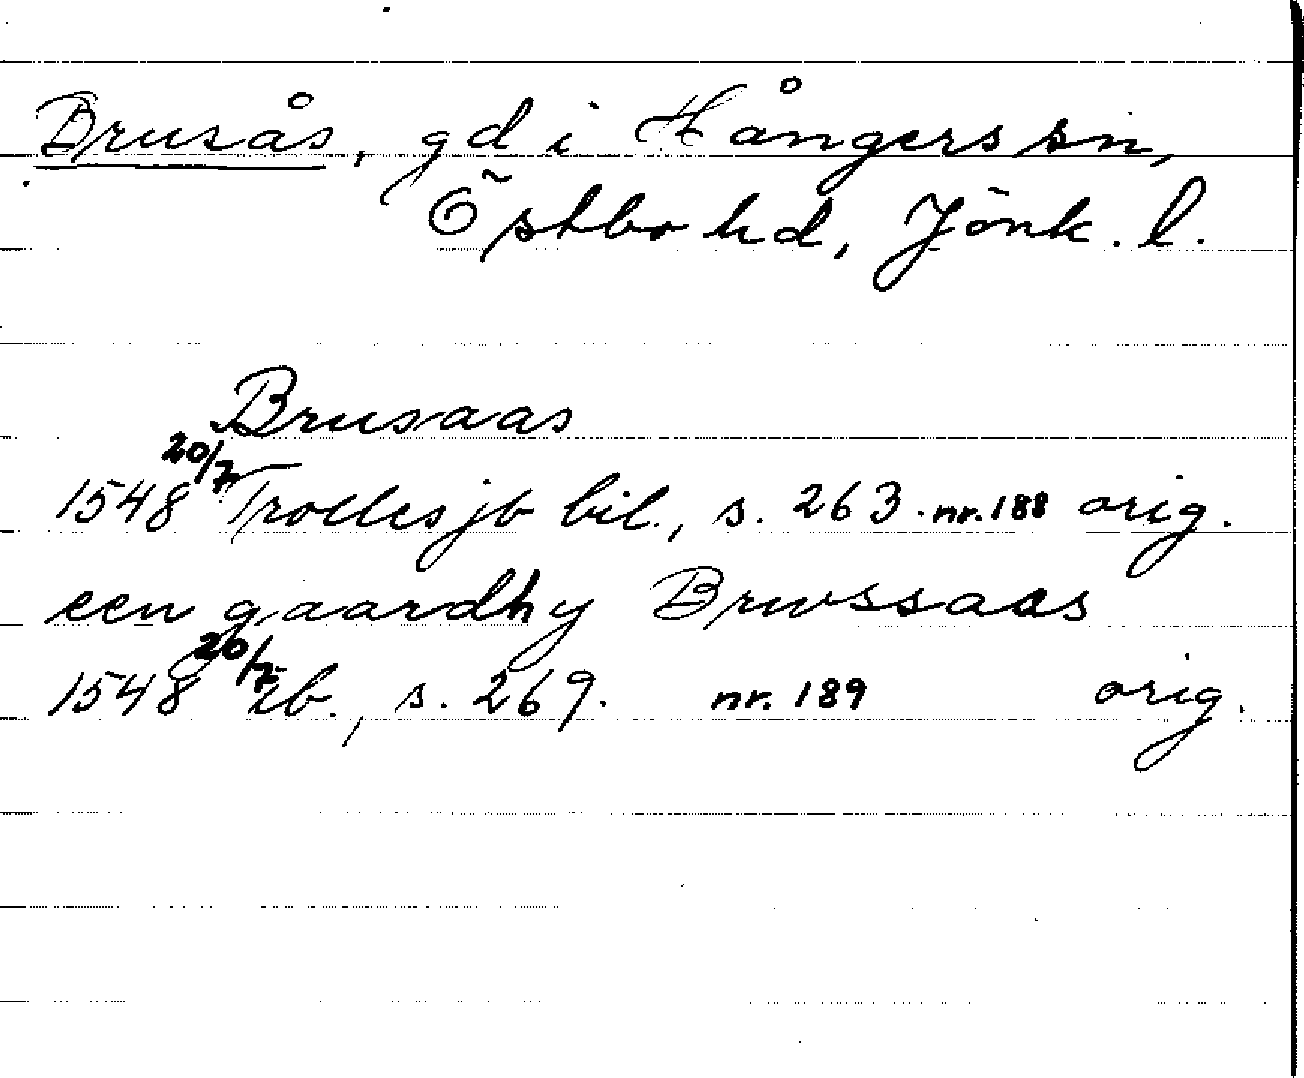 Brusås, gd i Hångers sn,
Östbo hd, Jönk. l.
Brusaas
1548 20/7 Trolles jb bil., s. 263. nr. 188 orig.
een gaardhy Brwssaas
1548 20/7 ib., s. 269. nr. 189 orig.